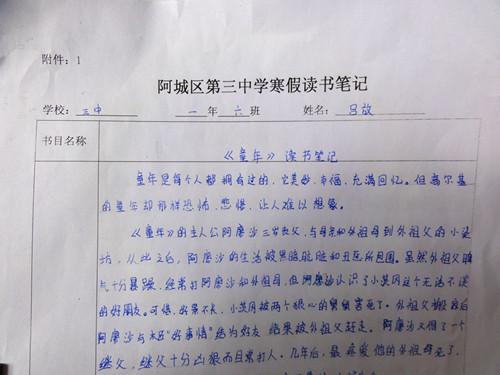 附件：1
阿城区第三中学寒假读书笔记
学校： 三中 一 年 六 班 姓名： 吕放
书目名称
《童年》 读书笔记
童年是每个人都拥有过的，它美妙、幸福，充满回忆。但高尔基
的童年却那样恐怖、悲惨，让人难以想象。
《童年》的主人公阿廖沙三岁丧父，与母亲和外祖母到外祖父的小染
坊，从此之后，阿廖沙的生活被黑暗肮脏和丑陋所包围。虽然外祖父脾
气十分暴躁，经常打阿廖沙和外祖母，但阿廖沙认识了小茨冈这个无话不谈
的好朋友。可惜，好景不长，小茨冈被两个狠心的舅舅害死了。外祖父搬家后
阿廖沙与 "好事情"结为好友，结果被外祖父赶走。阿廖沙又得了一个
继父，继父十分凶狠而且常打人。几年后，最疼爱他的外祖母死了，